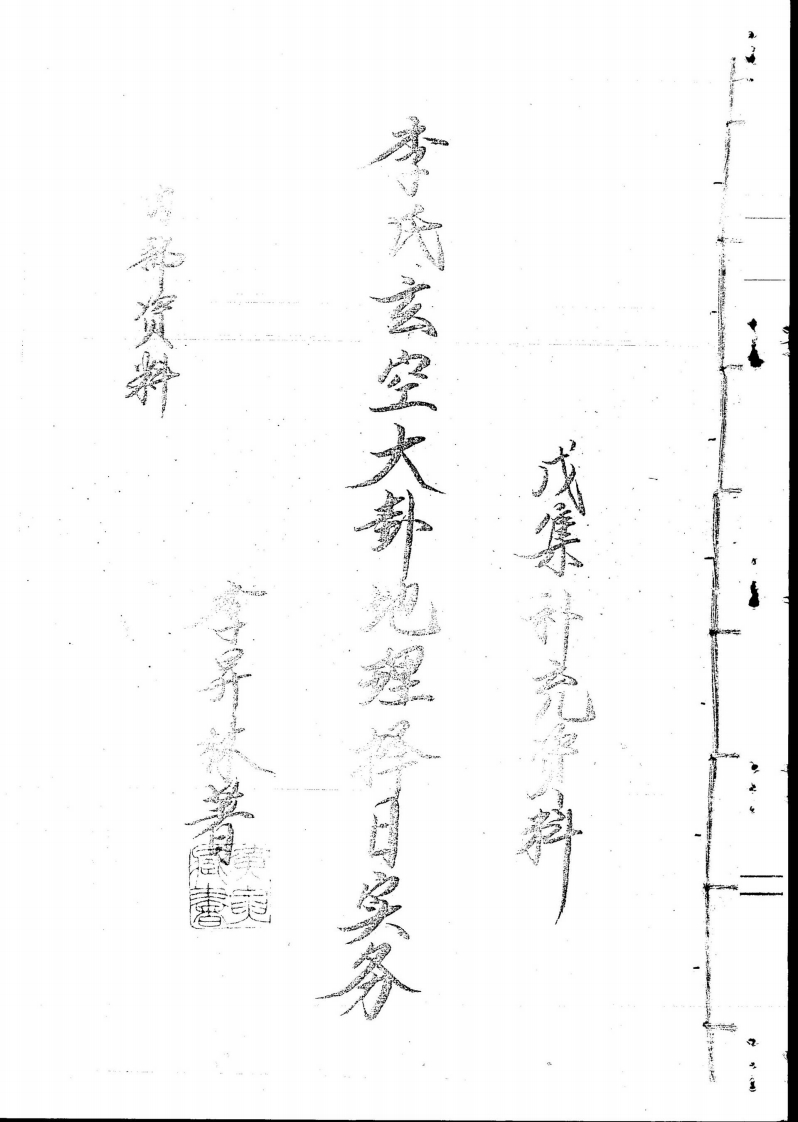 戊集补充资料
李氏玄空大卦地理择日实务
内部资料
李昇林著